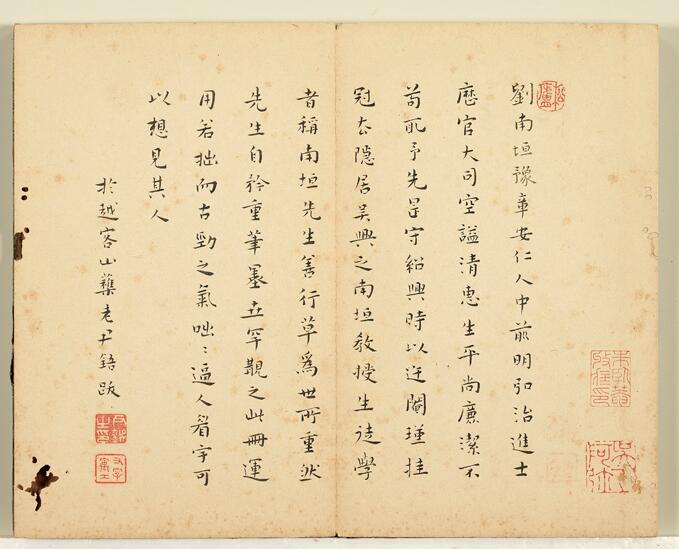 劉南垣豫章安仁人中前明弘治進士
歷官大司空謚清惠生平尚廉潔不
苟取予先是守紹興時以迕閹瑾挂
冠去隱居吳興之南垣敎授生徒學
者稱南垣先生善行草爲世所重然
先生自矜重筆墨世罕覯之此冊運
用若拙而古勁之氣咄〻逼人着字可
以想見其人
於越客山藥老尹鋙跋